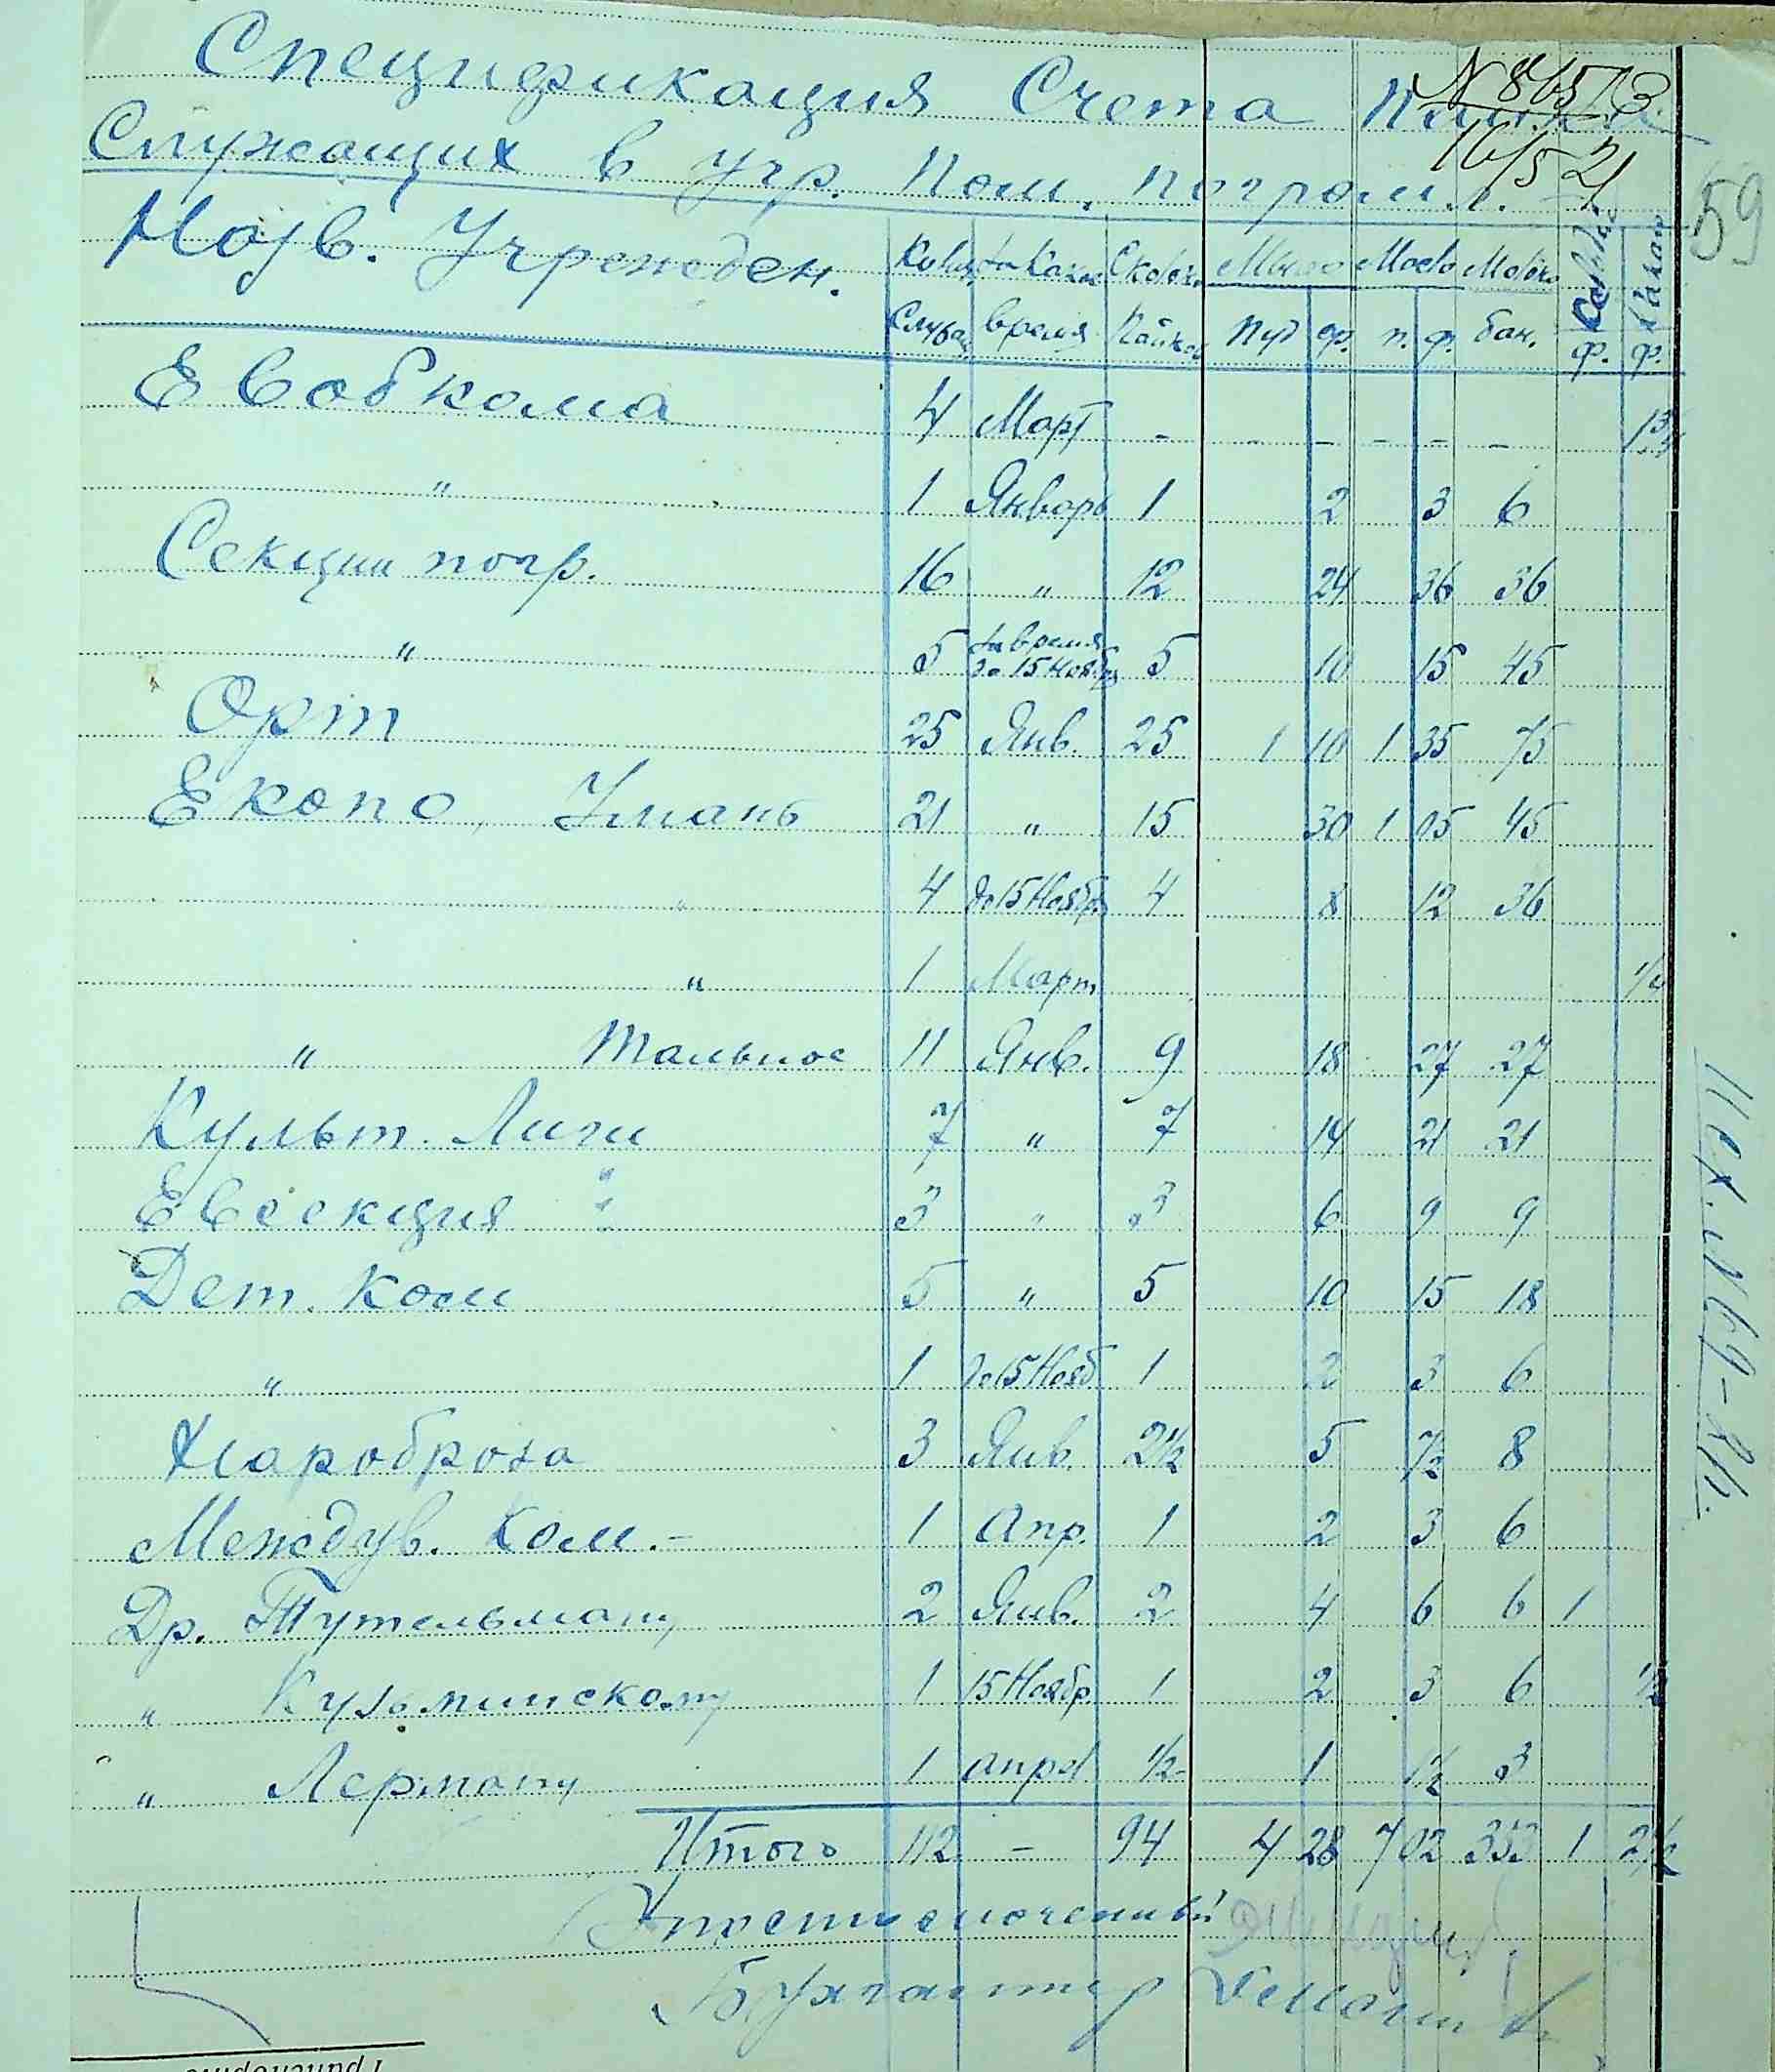 № 8657/3
16/5 21
59
Спецификация Счета
Служащих в Учр. Пом. погромл.
Назв. Учрежден. Колич. Служащ. За какое время Сколько Пайков Мыло Пуд ф. Масло п. ф. Молоко бан. ф. Какао ф.
Евобкома 4 Март - - - - - - 1 3/4
" 1 Январь 1 2 3 6
Секции погр. 16 " 12 24 36 36
" 5 за время до 15 Ноября 5 10 15 45
Орт 25 Янв. 25 1 10 1 35 75
Екопо, Умань 21 " 15 30 1 05 45
" 4 до 15 Ноября 4 8 12 36
" 1 Март
" Тальное 11 Янв. 9 18 27 27
Культ. Лиги 7 " 7 14 21 21
Евсекция 3 " 3 6 9 9
Дет. Ком 5 " 5 10 15 18
" 1 до 15 Нояб 1 2 3 6
Наробраза 3 Янв. 2 1/2 5 7 1/2 8
Междув. Ком. - 1 Апр. 1 2 3 6
Др. Тутельману 2 Янв. 2 4 6 6 1
" Кузьминскому 1 15 Ноябр. 1 2 3 6 1/2
" Лерману 1 апрел 1/2 1 1 1/2 3
Итого 112 - 94 4 28 7 02 353 1 2 1/2
Уполномоченный
Бухгалтер
Исх. №69-81.